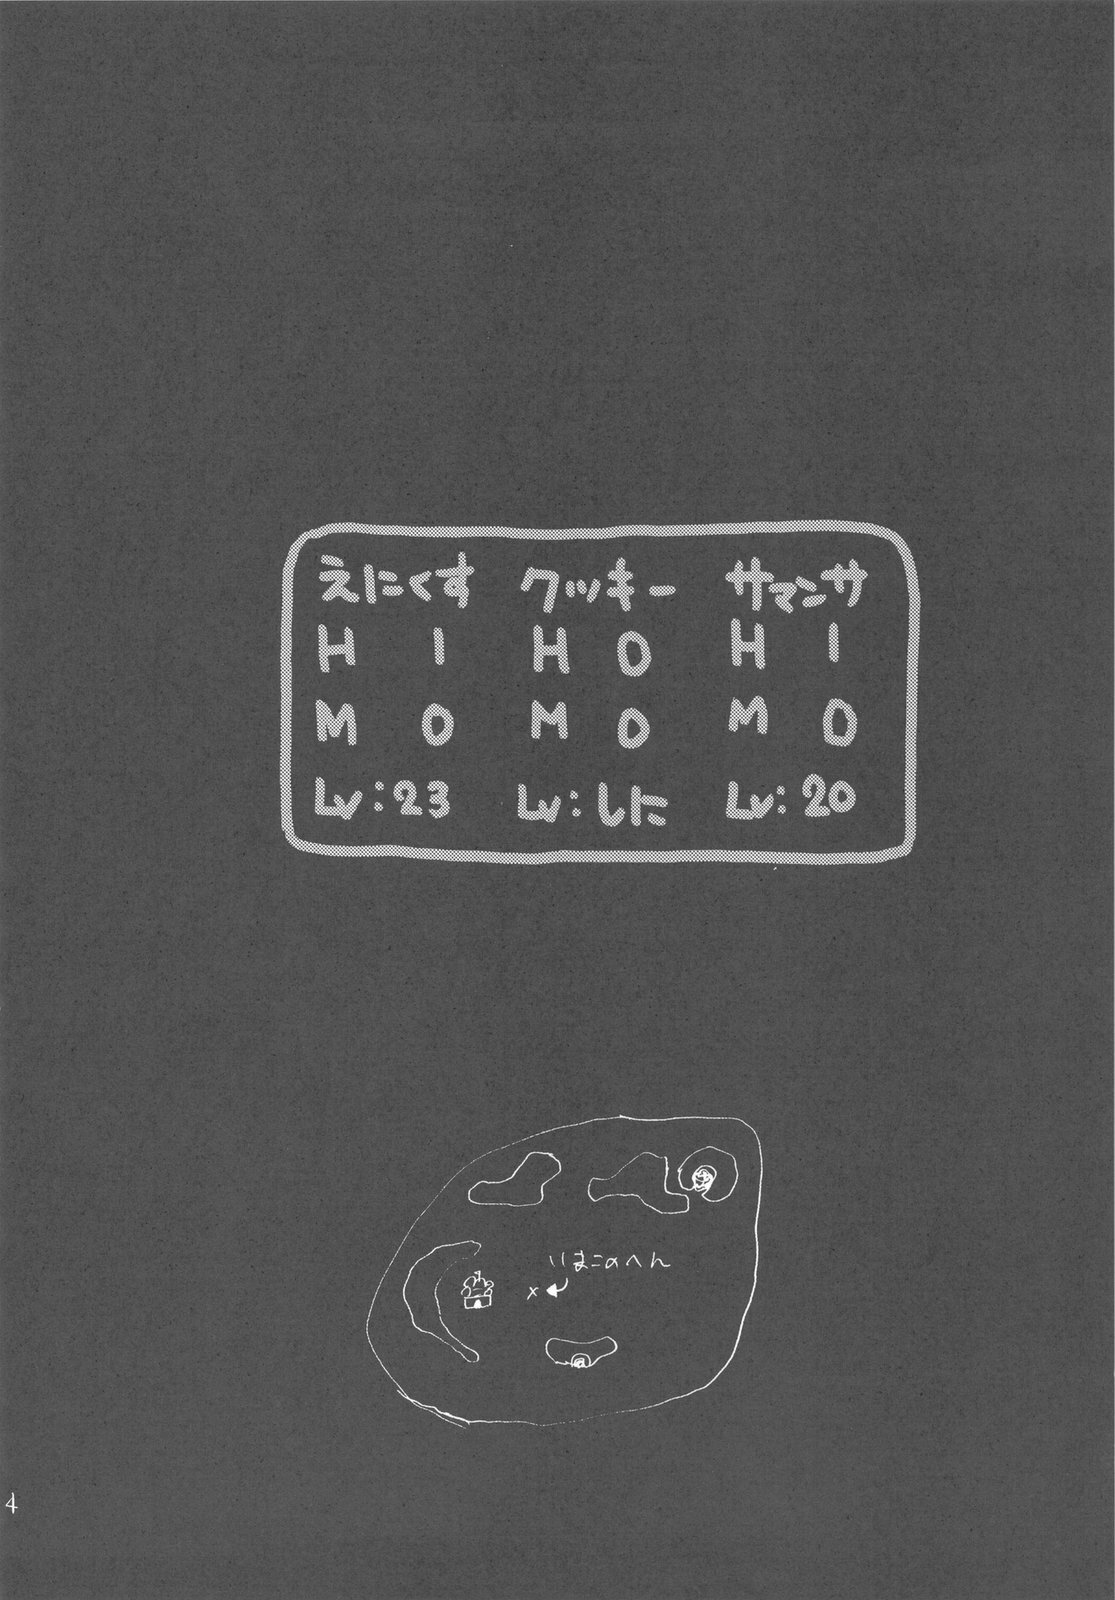 えにくす クッキー サマンサ
H 1 H 0 H 1
M 0 M 0 M 0
Lv:23 Lv:しに Lv:20
いまこのへん
×
4